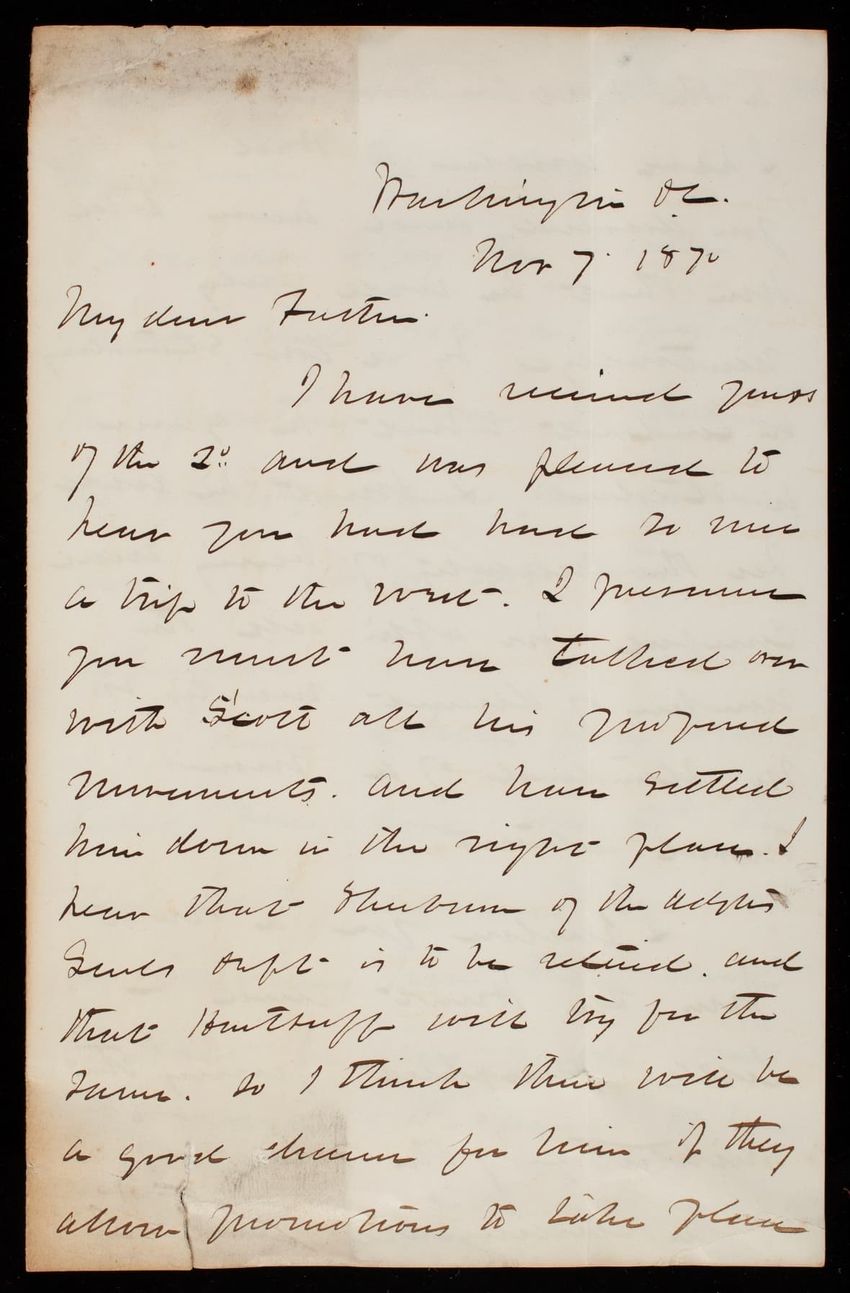 Washington DC.
Nov 7. 1870
My dear Foster.
I have received yours
of the 2d and was pleased to
hear you had had so nice
a trip to the west. I presume
you must have talked over
with Scott all his proposed
movements. and have settled
him down in the right place. I
hear that of the Adjts
Genls Dept is to be retired. and
that Hartsuff will try for the
same. so I think there will be
a good chance for him if they
allow promotions to take place